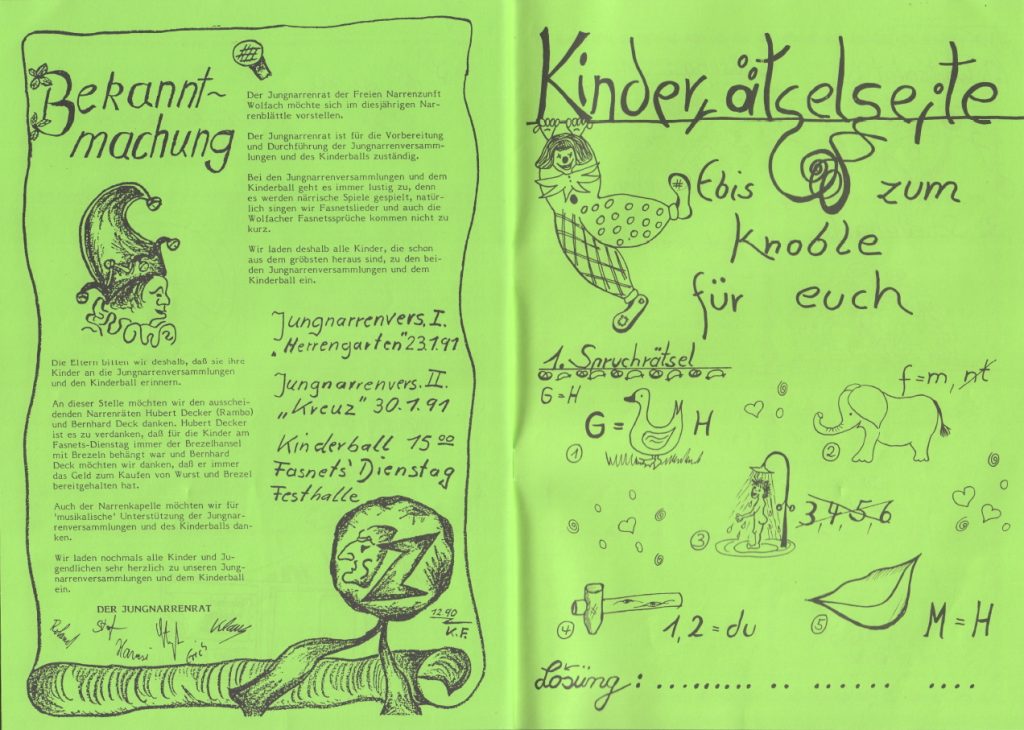 Bekannt~
machung
Der Jungnarrenrat der Freien Narrenzunft
Wolfach möchte sich im diesjährigen Nar-
renblättle vorstellen.
Der Jungnarrenrat ist für die Vorbereitung
und Durchführung der Jungnarrenversamm-
lungen und des Kinderballs zuständig.
Bei den Jungnarrenversammlungen und dem
Kinderball geht es immer lustig zu, denn
es werden närrische Spiele gespielt, natür-
lich singen wir Fasnetslieder und auch die
Wolfacher Fasnetssprüche kommen nicht zu
kurz.
Wir laden deshalb alle Kinder, die schon
aus dem gröbsten heraus sind, zu den bei-
den Jungnarrenversammlungen und dem
Kinderball ein.
Jungnarrenvers. I.
"Herrengarten" 23.1.91
Jungnarrenvers. II.
"Kreuz" 30.1.91
Kinderball 15 00
Fasnets' Dienstag
Festhalle
Die Eltern bitten wir deshalb, daß sie ihre
Kinder an die Jungnarrenversammlungen
und den Kinderball erinnern.
An dieser Stelle möchten wir den ausschei-
denden Narrenräten Hubert Decker (Rambo)
und Bernhard Deck danken. Hubert Decker
ist es zu verdanken, daß für die Kinder am
Fasnets-Dienstag immer der Brezelhansel
mit Brezeln behängt war und Bernhard
Deck möchten wir danken, daß er immer
das Geld zum Kaufen von Wurst und Brezel
bereitgehalten hat.
Auch der Narrenkapelle möchten wir für
'musikalische' Unterstützung der Jungnar-
renversammlungen und des Kinderballs dan-
ken.
Wir laden nochmals alle Kinder und Ju-
gendlichen sehr herzlich zu unseren Jung-
narrenversammlungen und dem Kinderball
ein.
DER JUNGNARRENRAT
Roland Klaus
12.90
K.F.
Kinderrätselseite
Ebis zum
Knoble
für euch
1. Spruchrätsel
G=H
G = H
1
f=m, nt
2
3, 4, 5, 6
3
1,2 = du
4
M = H
5
Lösung: .......... .. ...... ....